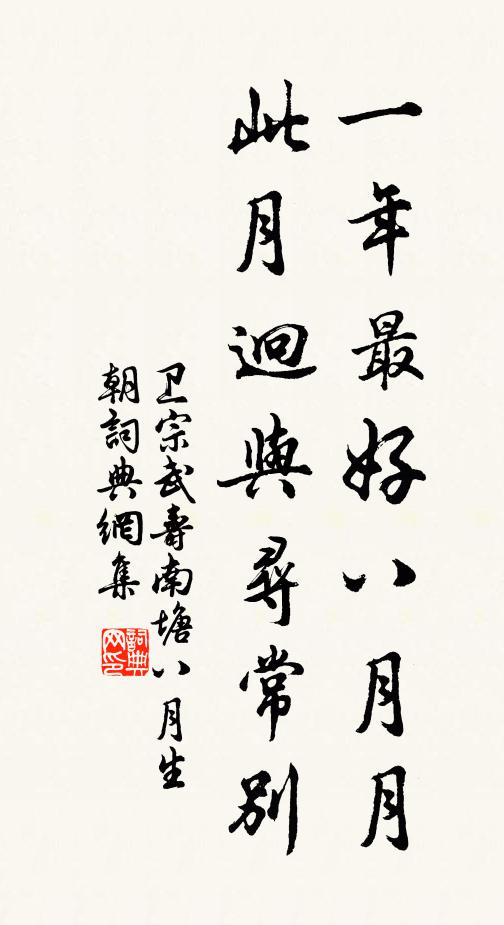 一年最好八月月
此月迥與尋常別
卫宗武壽南塘八月生
朝詞典網集
詞典网印